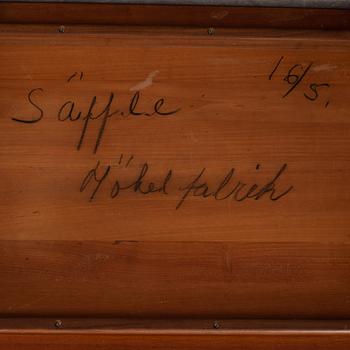 Säffle 16/5.
Möbelfabrik